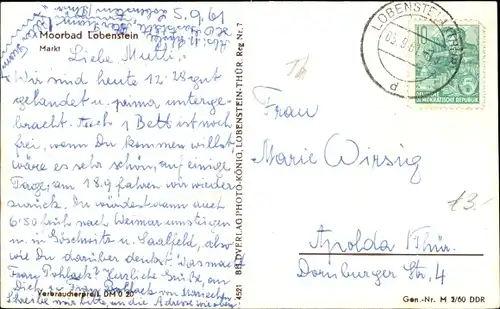 Moorbad Lobenstein
Markt
Liebe Mutti!
Wir sind heute 12.28 gut
gelandet u. prima unterge-
bracht. Auch 1 Bett ist noch
frei, wenn Du kommen willst
wäre es sehr schön, auf einige
Tage, am 18.9 fahren wir wieder
zurück. Du würdest wann auch
6.50 früh nach Weimar umsteigen
u. in Göschwitz u. Saalfeld, also
wie Du darüber denkst. Was mac
Frau Pohlack? Herzliche Grüße, an
Dich u. Frau Pohlack von
Schreibe mir bitte, an die Adresse wie oben
Verbraucherpreis DM 0 20
4521 BILDVERLAG PHOTO-KÖNIG, LOBENSTEIN-THÜR. Reg Nr. 7
LOBENSTEIN (THÜR)
d
10
DEMOKRATISCHE REPUBLIK
Th
Frau
Marie Wirsig
13.-
Apolda Thür.
Dornburger Str. 4
Gen.-Nr. M 2/60 DDR